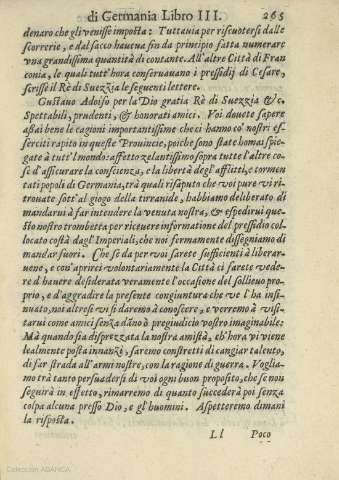 di Germania Libro III. 265
denaro che gli venisse imposta: Tuttauia per riscuotersi dalle
scorrerie, e dal sacco haueua fin da principio fatta numerar
vna grandissima quantità di contante. All'altre Città di Fran
conia, le quali tutt'hora conseruauano i pressidij di Cesare,
scrisse il Rè di Suezzia le seguenti lettere.
Gustauo Adolfo per la Dio gratia Rè di Suezzia &c.
Spettabili, prudenti, & honorati amici. Voi douete sapere
assai bene le cagioni importantissime che ci hanno co' nostri es-
serciti rapito in queste Prouincie, poiche sono state homai spie-
gate à tutt'l mondo: affetto zelantissimo sopra tutte l'altre co-
se d'assicurare la conscienza, e la libertà degl'afflitti, e tormen
tati popoli di Germania, trà quali risaputo che voi pure vi ri-
trouate sott'al giogo della tirranide, habbiamo deliberato di
mandarui à far intendere la venuta nostra, & espedirui que-
sto nostro trombetta per riceuere informatione del pressidio col-
locato costà dagl'Imperiali, che noi fermamente dissegniamo di
mandar fuori. Che se da per voi sarete sufficienti à liberar-
uene, e con'aprirci volontariamente la Città ci farete vede-
re d'hauere desiderata veramente l'occasione del sollieuo pro-
prio, e d'aggradire la presente congiuntura che ve l'hà insi-
nuato, noi altresì vi si daremo à conoscere, e verremo à visi-
tarui come amici senza dāno ò pregiudicio vostro imaginabile:
Mà quando sia disprezzata la nostra amistà, ch'hora vi viene
lealmente posta innanzi, saremo constretti di cangiar talento,
di far strada all'armi nostre, con la ragione di guerra. Voglia-
mo trà tanto persuadersi di voi ogni buon proposito, che se noi
seguirà in effetto, rimarremo di quanto succederà poi senza
colpa alcuna presso Dio, e gl'huomini. Aspetteremo dimani
la risposta.
Ll Poco
Colección ABANCA